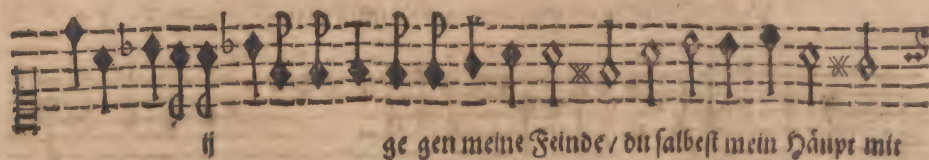 ij ge gen meine Feinde / du salbest mein Häupt mit